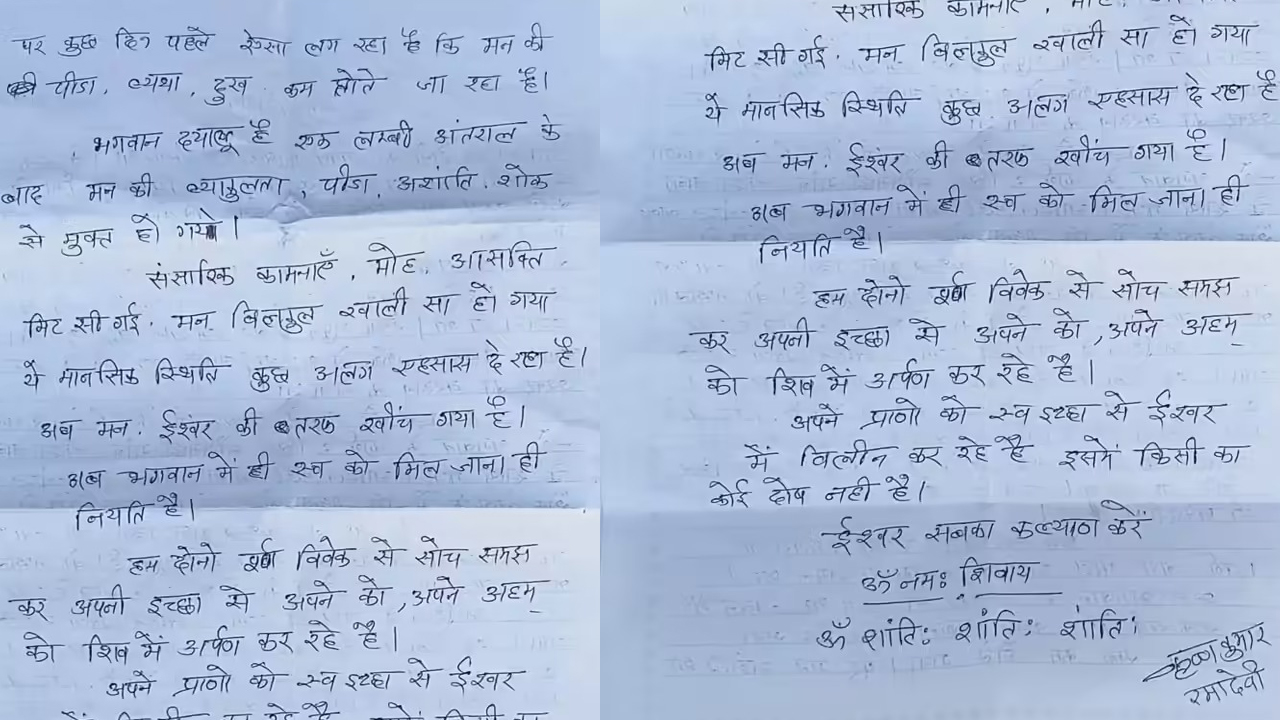 पर कुछ दिन पहले ऐसा लग रहा है कि मन की
की पीडा, व्यथा, दुख कम होते जा रहा है।
भगवान दयालू है एक लम्बी अंतराल के
बाद मन की व्याकुलता, पीडा, अशांति, शोक
से मुक्त हो गये।
संसारिक कामनाएँ, मोह, आसक्ति
मिट सी गई. मन बिल्कुल खाली सा हो गया
ये मानसिक स्थिति कुछ अलग एहसास दे रहा है।
अब मन: ईश्वर की तरफ खींच गया है।
अब भगवान मे ही स्व को मिल जाना ही
नियति है।
हम दोनो पूर्ण विवेक से सोच समझ
कर अपनी इच्छा से अपने को, अपने अहम्
को शिव में अर्पण कर रहे है।
अपने प्राणो को स्व इच्छा से ईश्वर
संसारिक कामनाएँ, मोह,
मिट सी गई. मन बिल्कुल खाली सा हो गया
ये मानसिक स्थिति कुछ अलग एहसास दे रहा है
अब मन: ईश्वर की तरफ खींच गया है।
अब भगवान मे ही स्व को मिल जाना ही
नियति है।
हम दोनो पूर्ण विवेक से सोच समझ
कर अपनी इच्छा से अपने को, अपने अहम्
को शिव में अर्पण कर रहे है।
अपने प्राणो को स्व इच्छा से ईश्वर
में विलीन कर रहे है इसमें किसी का
कोई दोष नही है।
ईश्वर सबका कल्याण करें
ॐ नमः शिवाय
ॐ शांति: शांति: शांति:
कृष्ण कुमार
रमादेवी